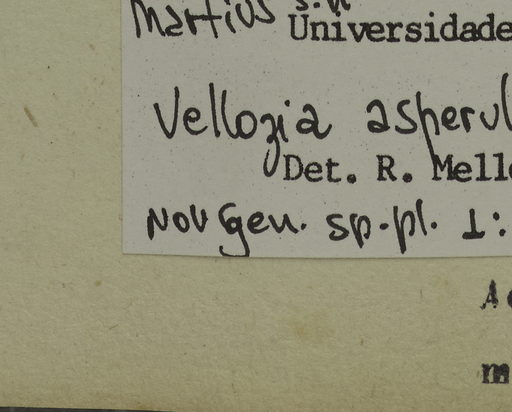 Martius s.n
Universidade
Vellozia asperul
Det. R. Mell
Nov Gen. sp.pl. 1:
A
m